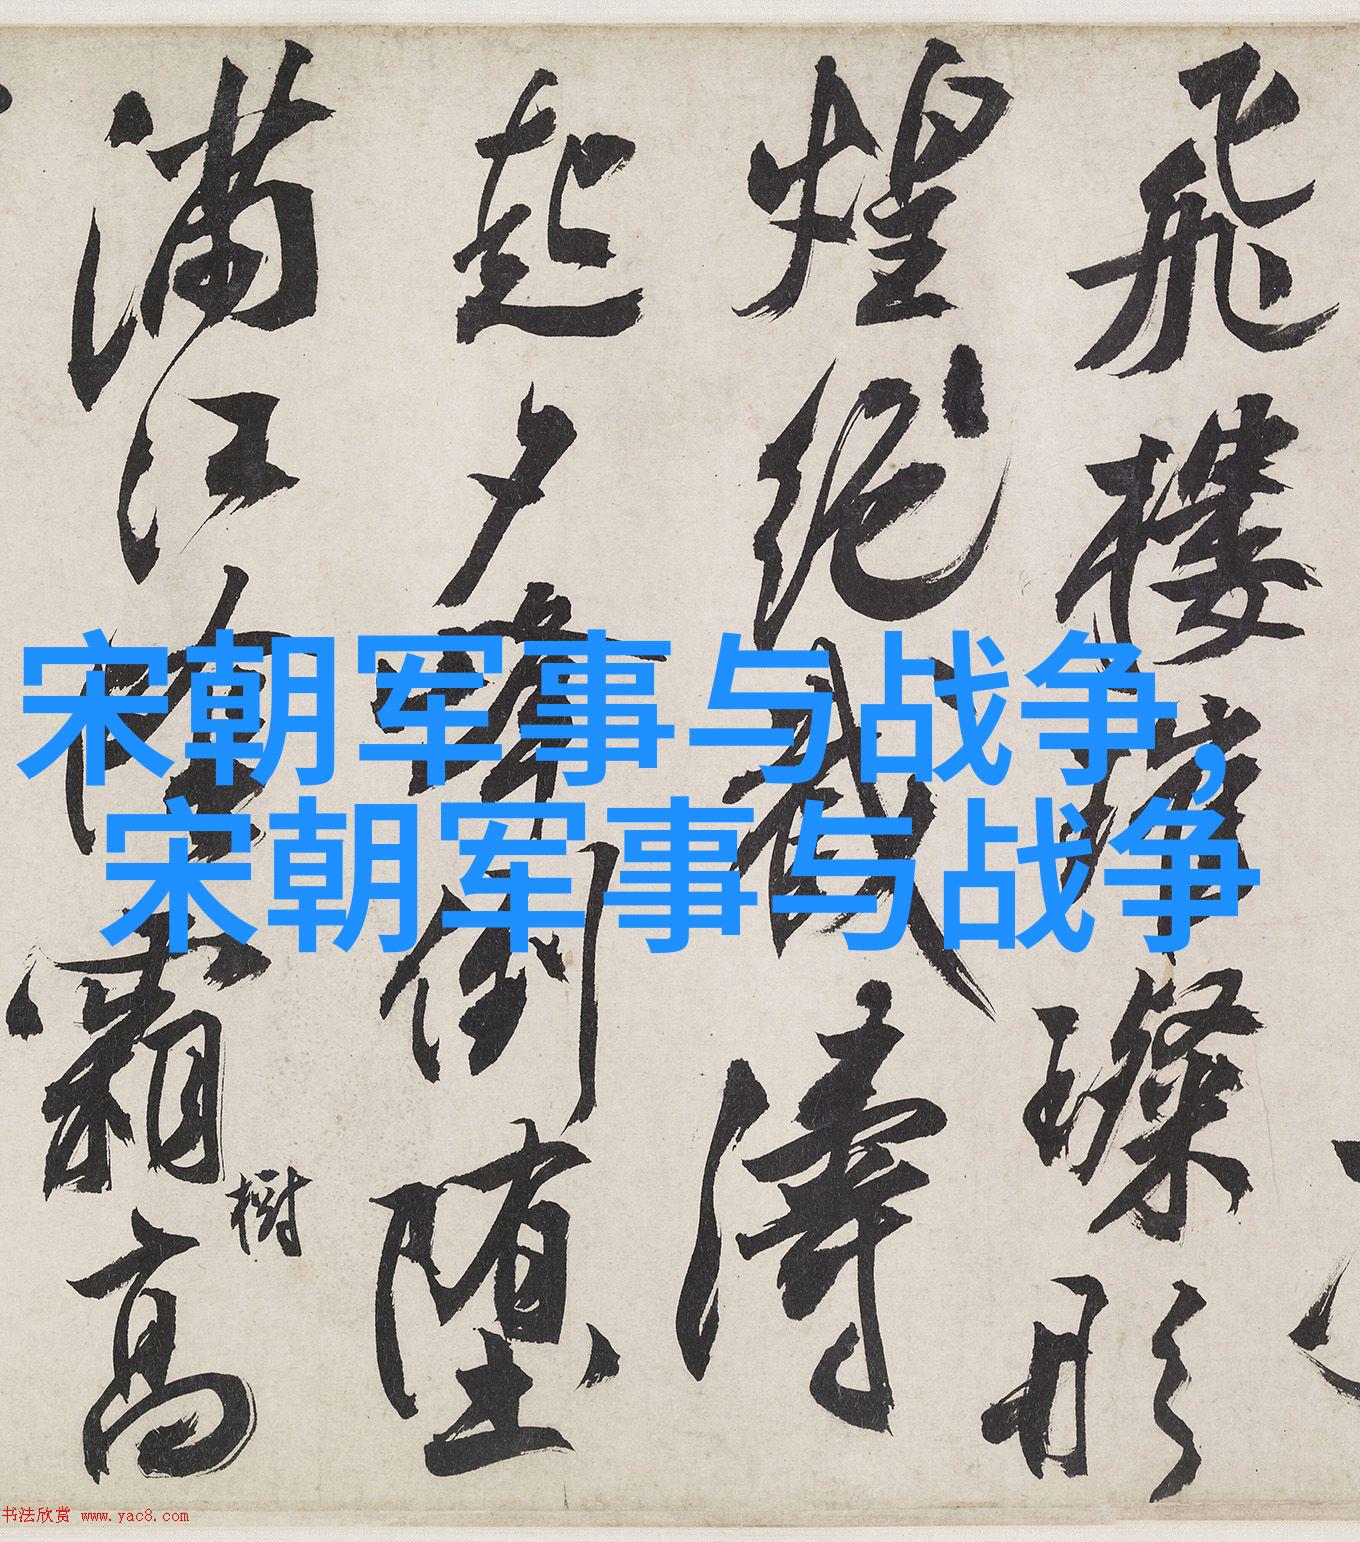 宋朝军事与战争,
宋朝军事与战争
飛樓璀璨形
煌截濤
起夕峰倒堕
滿江霜高
樹
书法欣赏 www.yac8.com